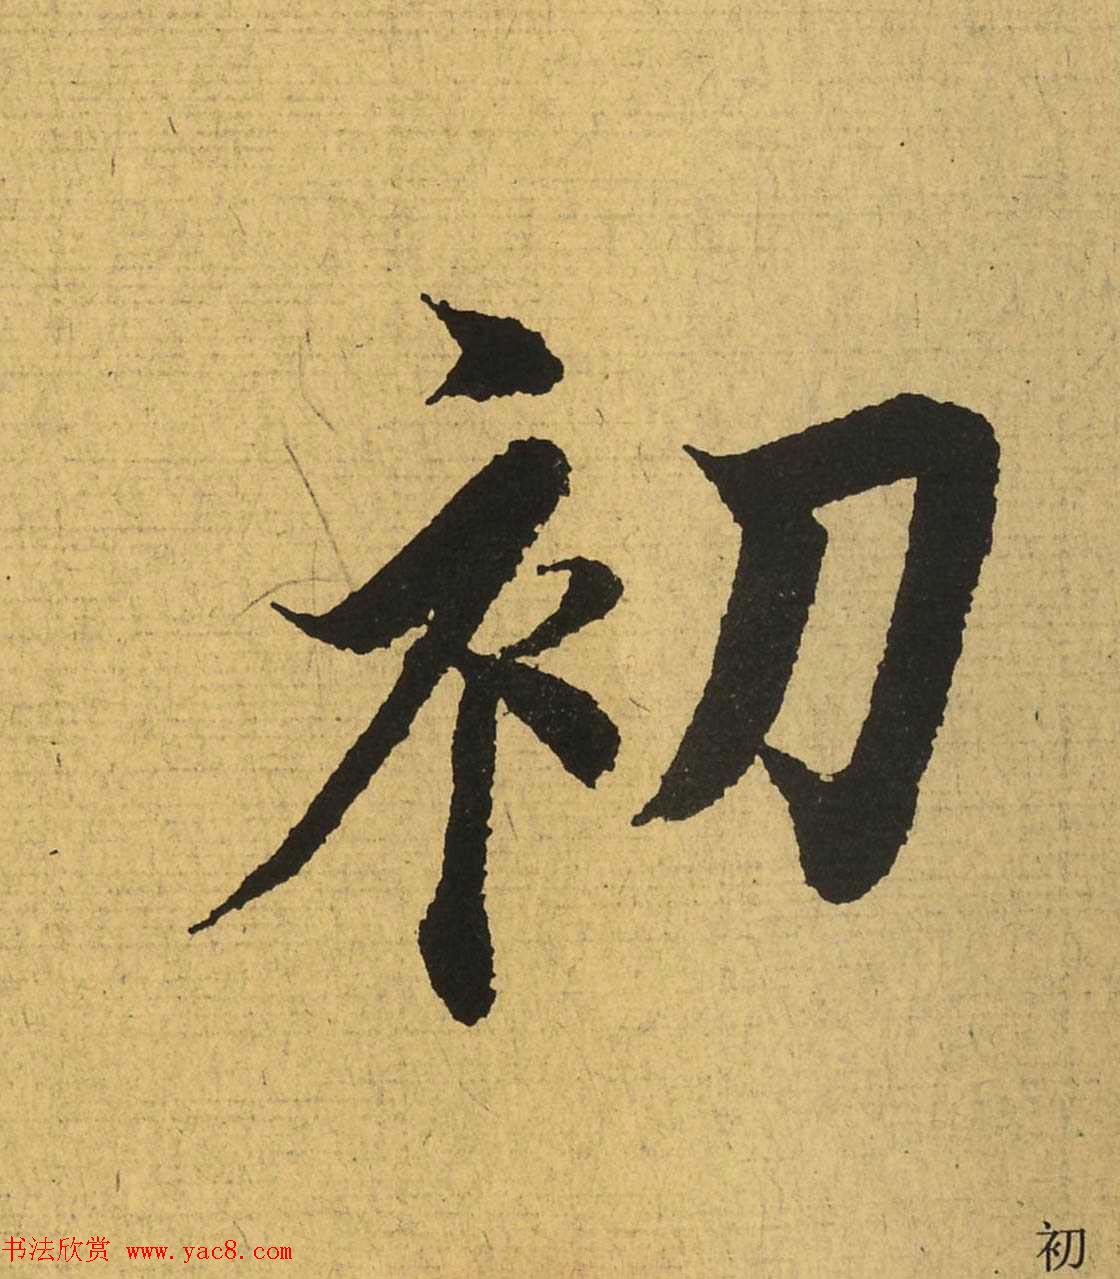 初
书法欣赏 www.yac8.com
初